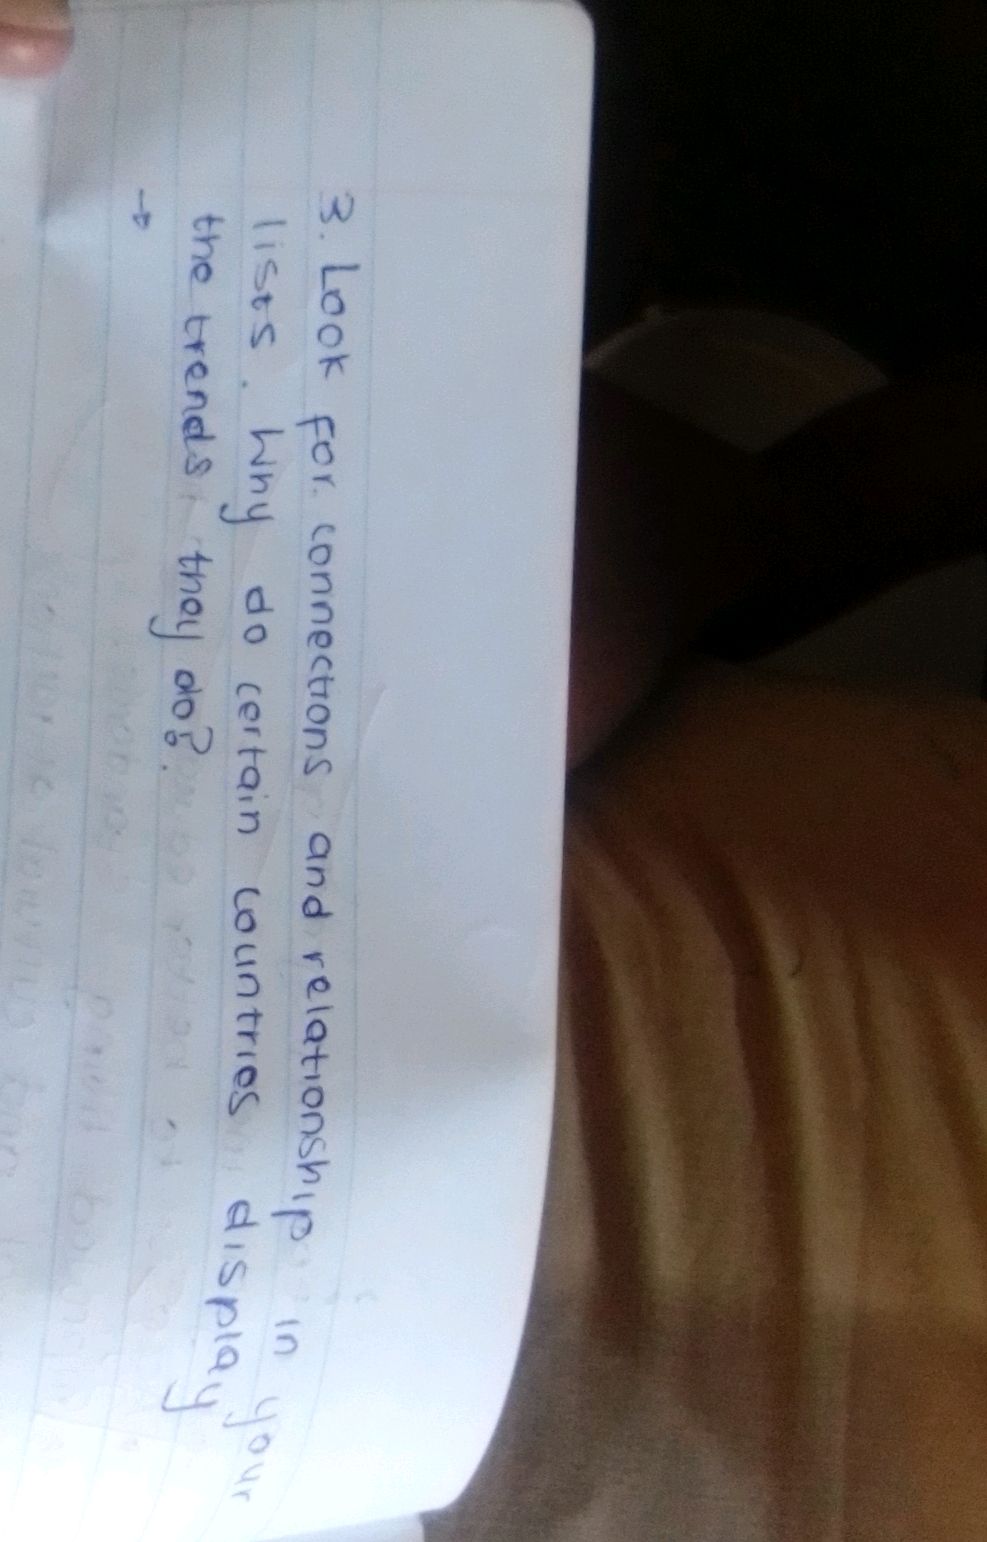 3. Look for connections and relationship in your
lists. Why do certain countries display
the trends they do?
→